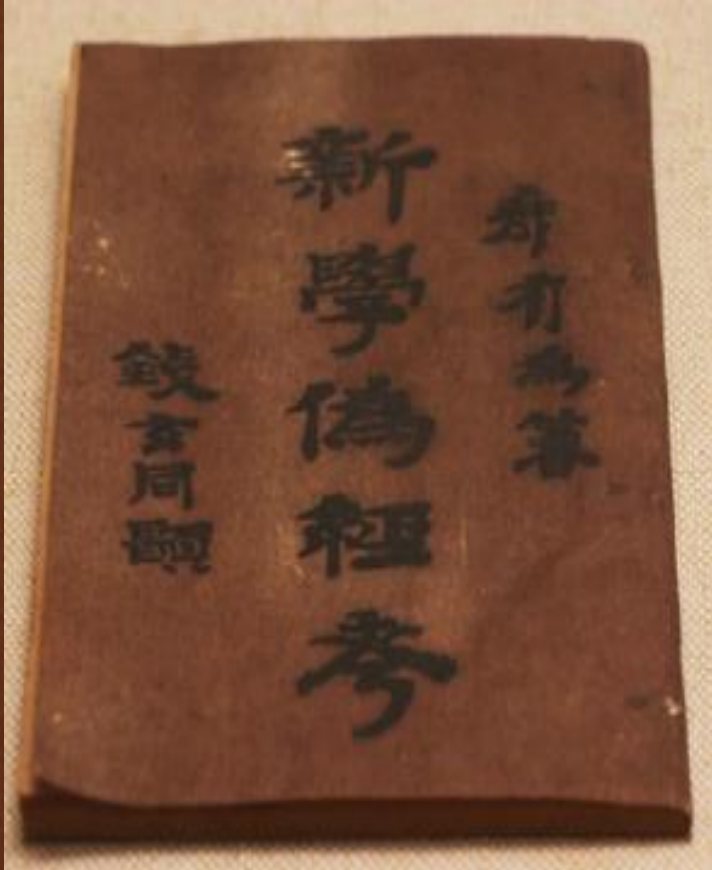 康有為箸
新學僞經考
錢玄同題